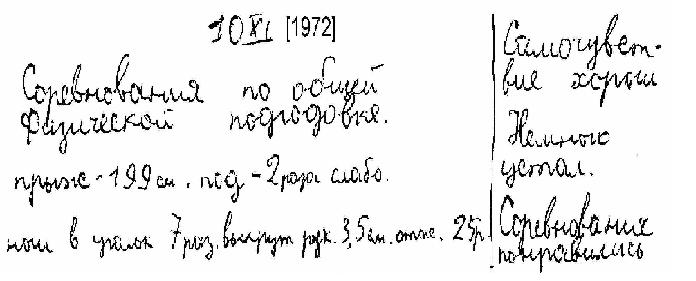 10 XI [1972]
Соревнования по общей
физической подгодовке.
прыж - 199 см. под - 2 раза слабо.
ноги в уголок 7 раз. выкрут рук. 3,5 см. отже. 25 р.
Самочувст-
вие хорош
Немного
устал.
Соревнования
понравились